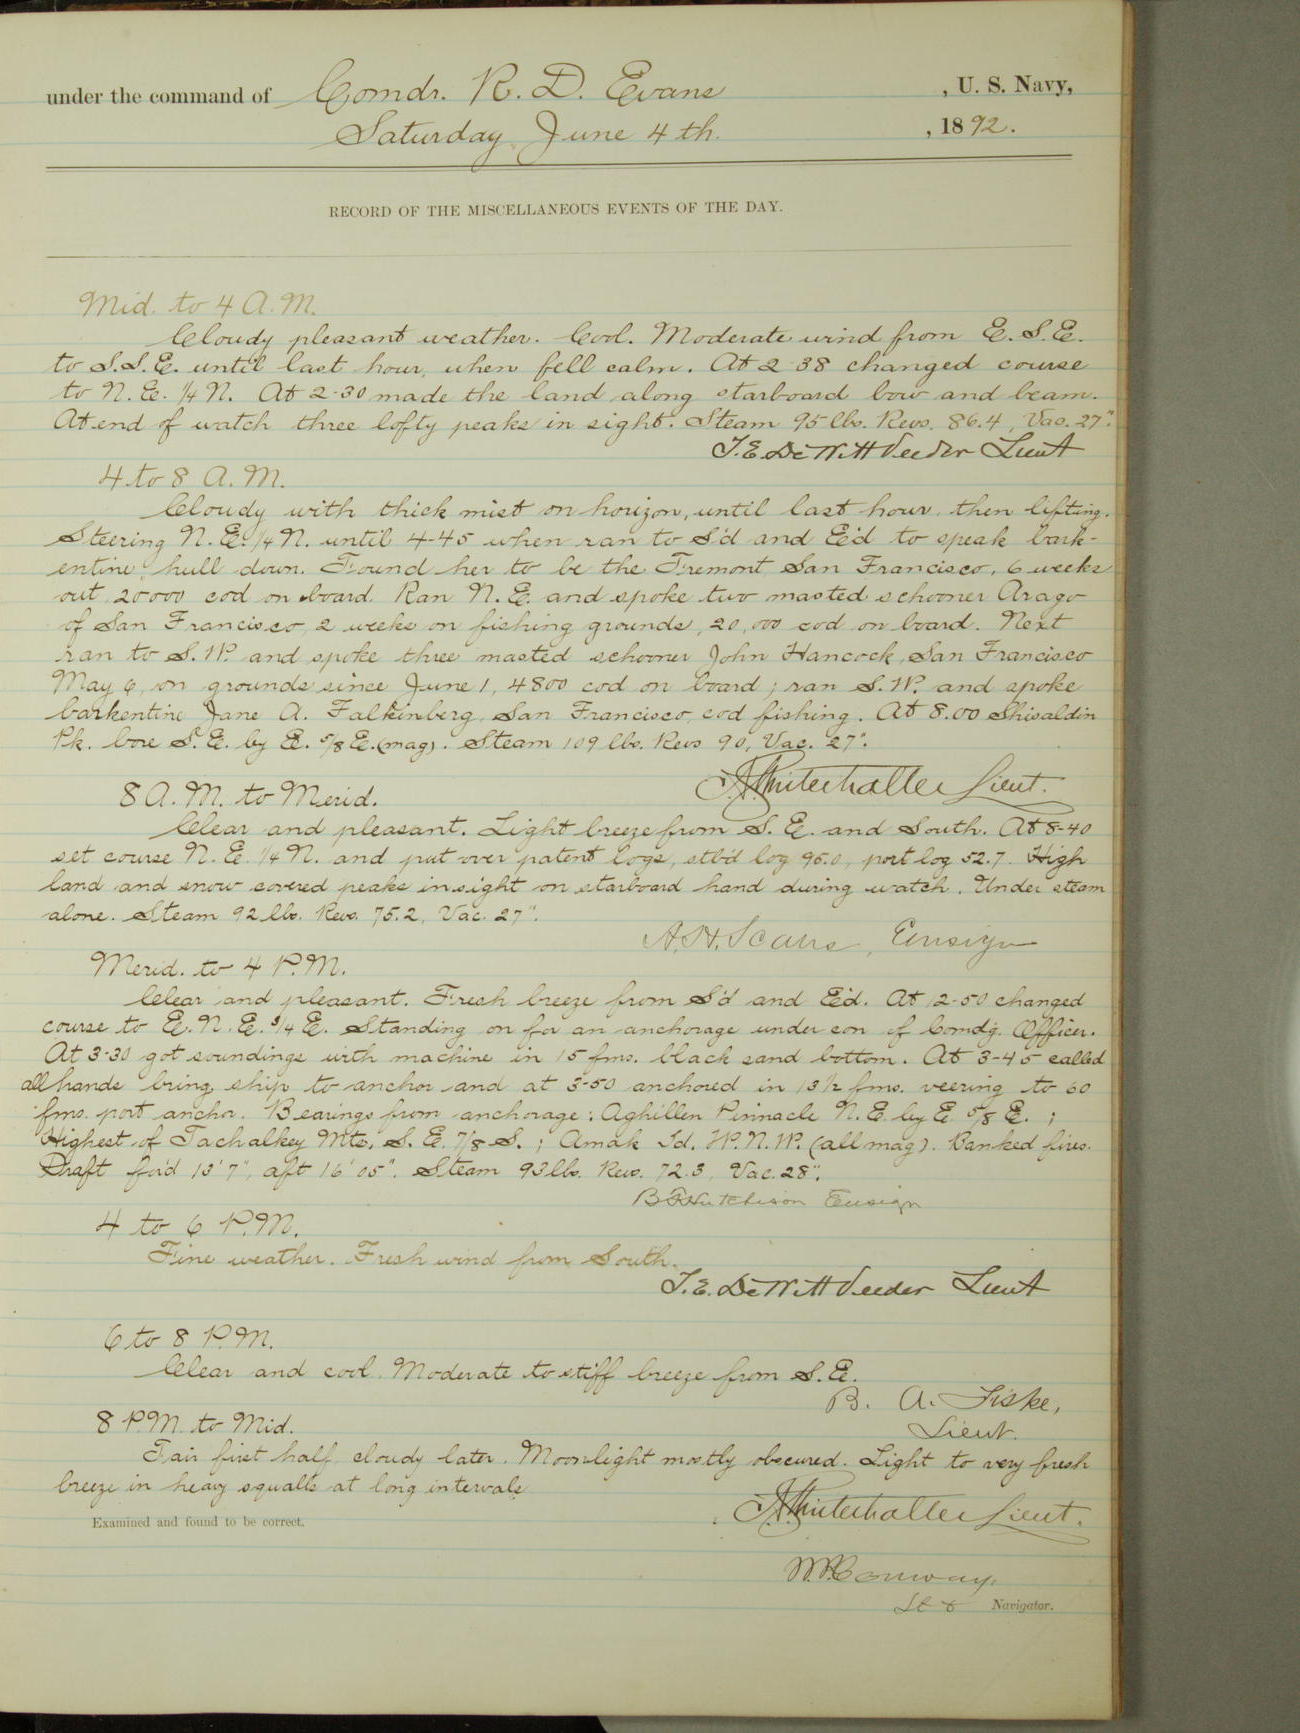 under the command of Comdr. R. D. Evans , U. S. Navy,
Saturday June 4th. , 1892.
RECORD OF THE MISCELLANEOUS EVENTS OF THE DAY.
Mid. to 4 A.M.
Cloudy pleasant weather. Cool. Moderate wind from E.S.E.
to S.S.E. until last hour, when fell calm. At 2-38 changed course
to N.E. 1/4 N. At 2-30 made the land along starboard bow and beam.
At end of watch three lofty peaks in sight. Steam 95 lbs. Revs. 86.4, Vac. 27".
T.E. DeWitt Veeder Lieut
4 to 8 A.M.
Cloudy with thick mist on horizon, until last hour, then lifting.
Steering N.E. 1/4 N. until 4-45 when ran to S'd and E'd to speak bark-
entine, hull down. Found her to be the Fremont, San Francisco, 6 weeks
out, 20000 cod on board. Ran N.E. and spoke two masted schooner Arago
of San Francisco, 2 weeks on fishing grounds, 20,000 cod on board. Next
ran to S.W. and spoke three masted schooner John Hancock, San Francisco
May 6, on grounds since June 1, 4800 cod on board; ran S.W. and spoke
barkentine Jane A. Falkinberg, San Francisco, cod fishing. At 8.00 Shisaldin
Pk. bore S.E. by E. 5/8 E. (mag). Steam 109 lbs. Revs 90, Vac. 27".
A.G. Winterhalter Lieut.
8 A.M. to Merid.
Clear and pleasant. Light breeze from S.E. and South. At 8-40
set course N.E. 1/4 N. and put over patent logs, stb'd log 95.0, port log 52.7. High
land and snow covered peaks in sight on starboard hand during watch. Under steam
alone. Steam 92 lbs. Revs. 75.2, Vac. 27".
A.H. Scales, Ensign
Merid. to 4 P.M.
Clear and pleasant. Fresh breeze from S'd and E'd. At 12-50 changed
course to E.N.E. 3/4 E. Standing on for an anchorage under con of Comd'g. Officer.
At 3-30 got soundings with machine in 15 fms. black sand bottom. At 3-45 called
all hands bring ship to anchor and at 3-50 anchored in 13 1/2 fms. veering to 60
fms. port anchor. Bearings from anchorage: Aghillen Pinnacle N.E. by E. 5/8 E.;
Highest of Tachalkey Mts. S.E. 7/8 S.; Amak Id. W.N.W. (all mag). Banked fires.
Draft for'd 13' 7", aft 16' 05". Steam 93 lbs. Revs. 72.3, Vac. 28".
B.F. Hutchison Ensign
4 to 6 P.M.
Fine weather. Fresh wind from South.
T.E. DeWitt Veeder Lieut
6 to 8 P.M.
Clear and cool. Moderate to stiff breeze from S.E.
B. A. Fiske,
Lieut.
8 P.M. to Mid.
Fair first half, cloudy later. Moonlight mostly obscured. Light to very fresh
breeze in heavy squalls at long intervals
A.G. Winterhalter Lieut.
Examined and found to be correct.
W.P. Conway,
Lt & Navigator.